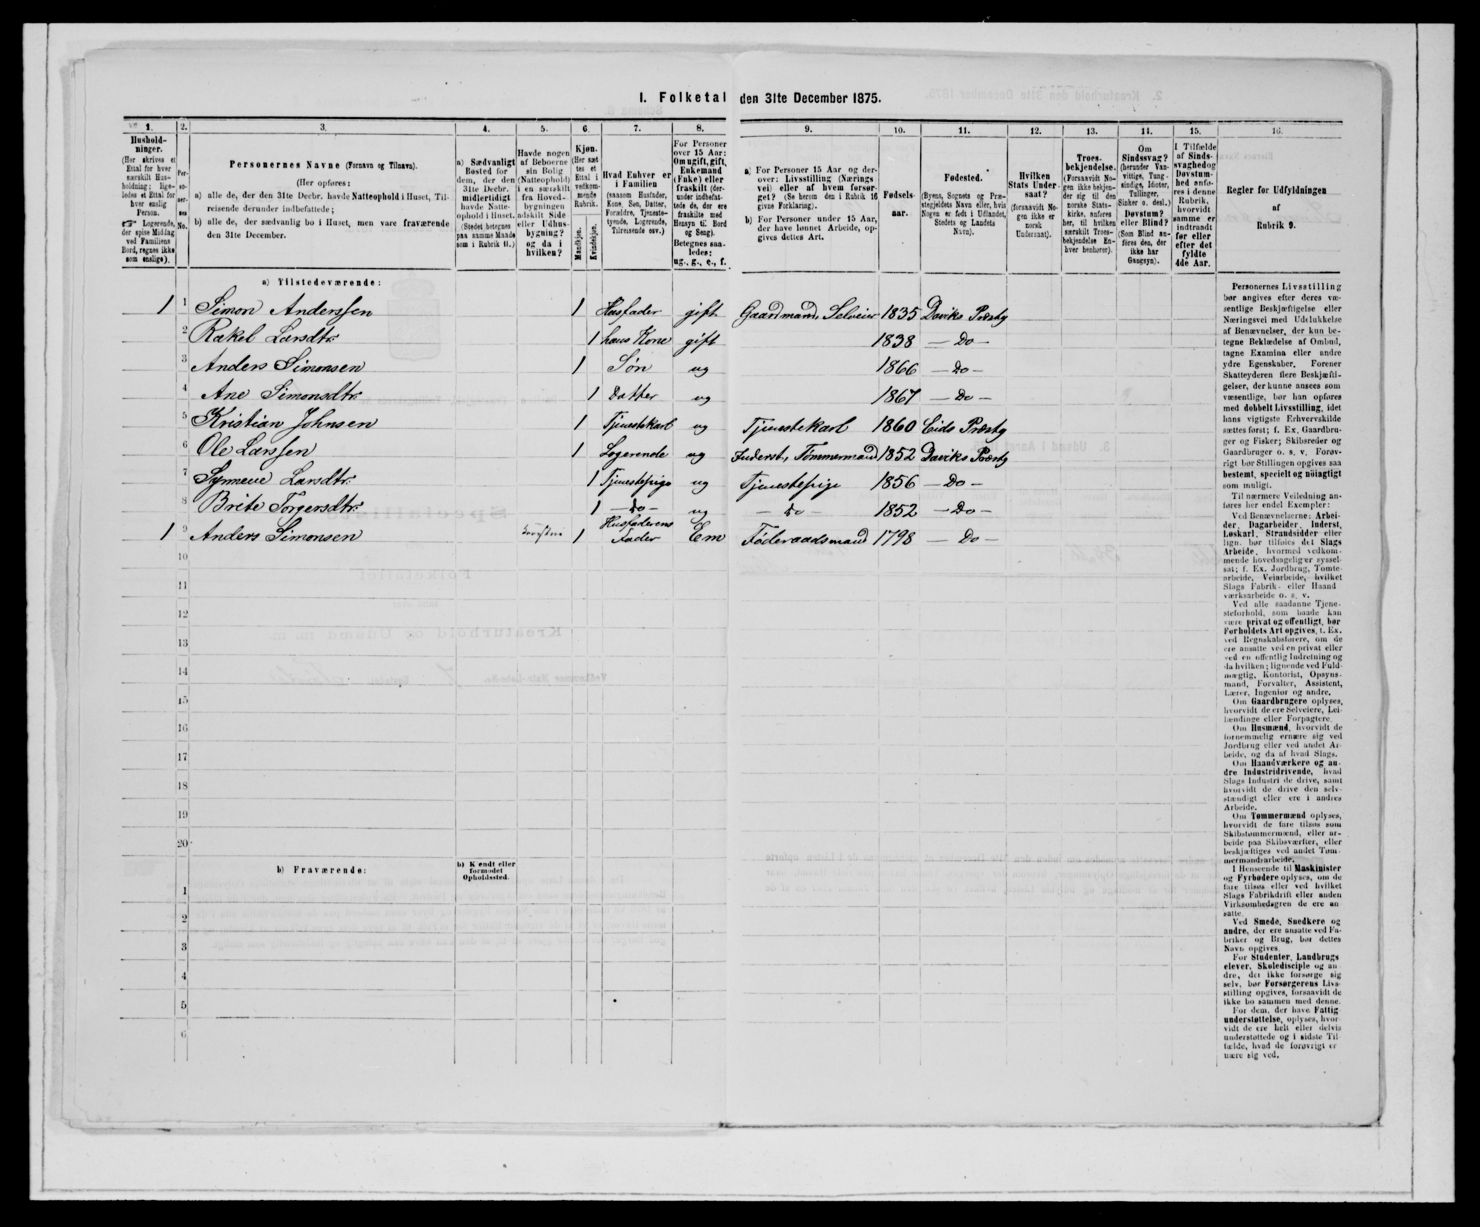 1. Folketal den 31te December 1875.
1. 2. 3. 4. 5. 6. 7. 8. 9. 10. 11. 12. 13. 14. 15. 16.
Hushold-
ninger.
(Her skrives et
Ettal for hver
særskilt Hus-
holdning; lige-
ledes et Ettal for
hver enslig
Person.
Logerende,
der spise Middag
ved Familiens
Bord, regnes ikke
som enslige).
Per-
so-
ner-
nes
No.
Personernes Navne (Fornavn og Tilnavn).
(Her opføres:
a) alle de, der den 31te Decbr. havde Natteophold i Huset, Til-
reisende derunder indbefattede;
b) alle de, der sædvanlig bo i Huset, men vare fraværende
den 31te December.
a) Sædvanligt
Bosted for
dem, der den
31te Decbr.
midlertidigt
havde Natte-
ophold i Huset.
(Stedet betegnes
paa samme Maade
som i Rubrik 11.)
Havde nogen
af Beboerne
sin Bolig
(Natteophold)
i en særskilt
fra Hoved-
bygningen
adskilt Side
eller Udhus-
bygning?
og da i
hvilken?
Kjøn.
(Her sæt
tes et
Ettal i
vedkom-
mende
Rubrik.
Mandkjøn.
Kvindekjøn.
Hvad Enhver er
i Familien
(saasom Husfader,
Kone, Søn, Datter,
Forældre, Tjeneste-
tyende, Logerende,
Tilreisende osv.)
For Personer
over 15 Aar:
Om ugift, gift,
Enkemand
(Enke) eller
fraskilt (der-
under indbefat-
tede de, der ere
fraskilte med
Hensyn til Bord
og Seng).
Betegnes saa-
ledes:
ug., g., e., f.
a) For Personer 15 Aar og der-
over: Livsstilling (Nærings
vei) eller af hvem forsør-
get? (Se herom den i Rubrik 16
givne Forklaring).
b) For Personer under 15 Aar,
der have lønnet Arbeide, op-
gives dettes Art.
Fødsels-
aar.
Fødested.
(Byens, Sognets og Præ-
stegjeldets Navn eller, hvis
Nogen er født i Udlandet,
Stedets og Landets
Navn).
Hvilken
Stats Under-
saat?
(forsaavidt No-
gen ikke er
norsk
Undersaat).
Troes-
bekjendelse.
(Forsaavidt No-
gen ikke bekjen-
der sig til den
norske Stats-
kirke, anføres
her, til hvilken
særskilt Troes-
bekjendelse En-
hver henhører).
Om
Sindssvag?
(herunder Van-
vittige, Tung-
sindige, Idioter,
Tullinger,
Sinker o. desl.)
Døvstum?
eller Blind?
(Som Blind an-
føres den, der
ikke har
Gangsyn).
I Tilfælde
af Sinds-
svaghedog
Døvstum-
hed anfø-
res i denne
Rubrik,
hvorvidt
samme er
indtraadt
før eller
efter det
fyldte
4de Aar.
Regler for Udfyldningen
af
Rubrik 9.
a) Tilstedeværende:
1 1 Simon Anderssen 1 Husfader gift Gaardmand, Selveier 1835 Daviks Præstg
2 Rakel Larsdtr. 1 hans Kone gift 1838 — Do —
3 Anders Simonsen 1 Søn ug 1866 — Do —
4 Ane Simonsdtr. 1 Datter ug 1867 — Do —
5 Kristian Johnsen 1 Tjenestekarl ug Tjenestekarl 1860 Eids Præstg
6 Ole Larssen 1 Logerende ug Inderst, Tømmermand 1852 Daviks Præstg
7 Synneve Larsdtr. 1 Tjenestepige ug Tjenestepige 1856 — Do —
8 Brite Torgersdtr. 1 — do — ug — do — 1852 — Do —
1 9 Anders Simonsen 1 Husfaderens Fader Em Føderaadsmand 1798 — Do —
10
11
12
13
14
15
16
17
18
19
20
b) Fraværende:
b) Kjendt eller
formodet
Opholdssted.
1
2
3
4
5
6
Personernes Livsstilling
bør angives efter deres væ-
sentlige Beskjæftigelse eller
Næringsvei med Udelukkelse
af Benævnelser, der kun be-
tegne Beklædelse af Ombud,
tagne Examina eller andre
ydre Egenskaber. Forener
Skatteyderen flere Beskjæfti-
gelser, der kunne ansees som
væsentlige, bør han opføres
med dobbelt Livsstilling, idet
hans vigtigste Erhvervskilde
sættes først; f. Ex. Gaardbru-
ger og Fisker; Skibsreder og
Gaardbruger o. s. v. Forøv-
rigt bør Stillingen opgives saa
bestemt, specielt og nøiagtigt
som muligt.
Til nærmere Veiledning an-
føres her endel Exempler:
Ved Benævnelserne: Arbei-
der, Dagarbeider, Inderst,
Løskarl, Strandsidder eller
lign. bør tilføies det Slags
Arbeide, hvormed vedkom-
mende hovedsagelig er syssel-
sat; f. Ex. Jordbrug, Tomte-
arbeide, Veiarbeide, hvilket
Slags Fabrik- eller Haand
værksarbeide o. s. v.
Ved alle saadanne Tjene-
steforhold, som baade kan
være privat og offentligt, bør
Forholdets Art opgives, t. Ex.
ved Regnskabsførere, om de
ere ansatte ved en privat eller
ved en offentlig Indretning og
da hvilken; lignende ved Fuld-
mægtig, Kontorist, Opsyns-
mand, Forvalter, Assistent,
Lærer, Ingeniør og andre.
Om Gaardbrugere oplyses,
hvorvidt de ere Selveiere, Lei-
lændinge eller Forpagtere.
Om Husmænd, hvorvidt de
fornemmelig ernære sig ved
Jordbrug eller ved andet Ar-
beide, og da af hvad Slags.
Om Haandværkere og an-
dre Industridrivende, hvad
Slags Industri de drive, samt
hvorvidt de drive den selv-
stændigt eller ere i andres
Arbeide.
Om Tømmermænd oplyses,
hvorvidt de fare tilsøs som
Skibstømmermænd, eller ar-
beide paa Skibsværfter, eller
beskjæftiges ved andet Tøm-
mermandsarbeide.
I Henseende til Maskinister
og Fyrbødere oplyses, om de
fare tilsøs eller ved hvilket
Slags Fabrikdrift eller anden
Virksomhedsgren de ere an-
satte.
Ved Smede, Snedkere og
andre, der ere ansatte ved Fa-
briker og Brug, bør dettes
Navn opgives.
For Studenter, Landbrugs
elever, Skoledisciple og an-
dre, der ikke forsørge sig
selv, bør Forsørgerens Livs-
stilling opgives, forsaavidt de
ikke bo sammen med denne.
For dem, der have Fattig-
understøttelse, oplyses, hvor-
vidt de ere helt eller delvis
understøttede og i sidste Til-
fælde, hvad de forøvrigt er
nære sig ved.